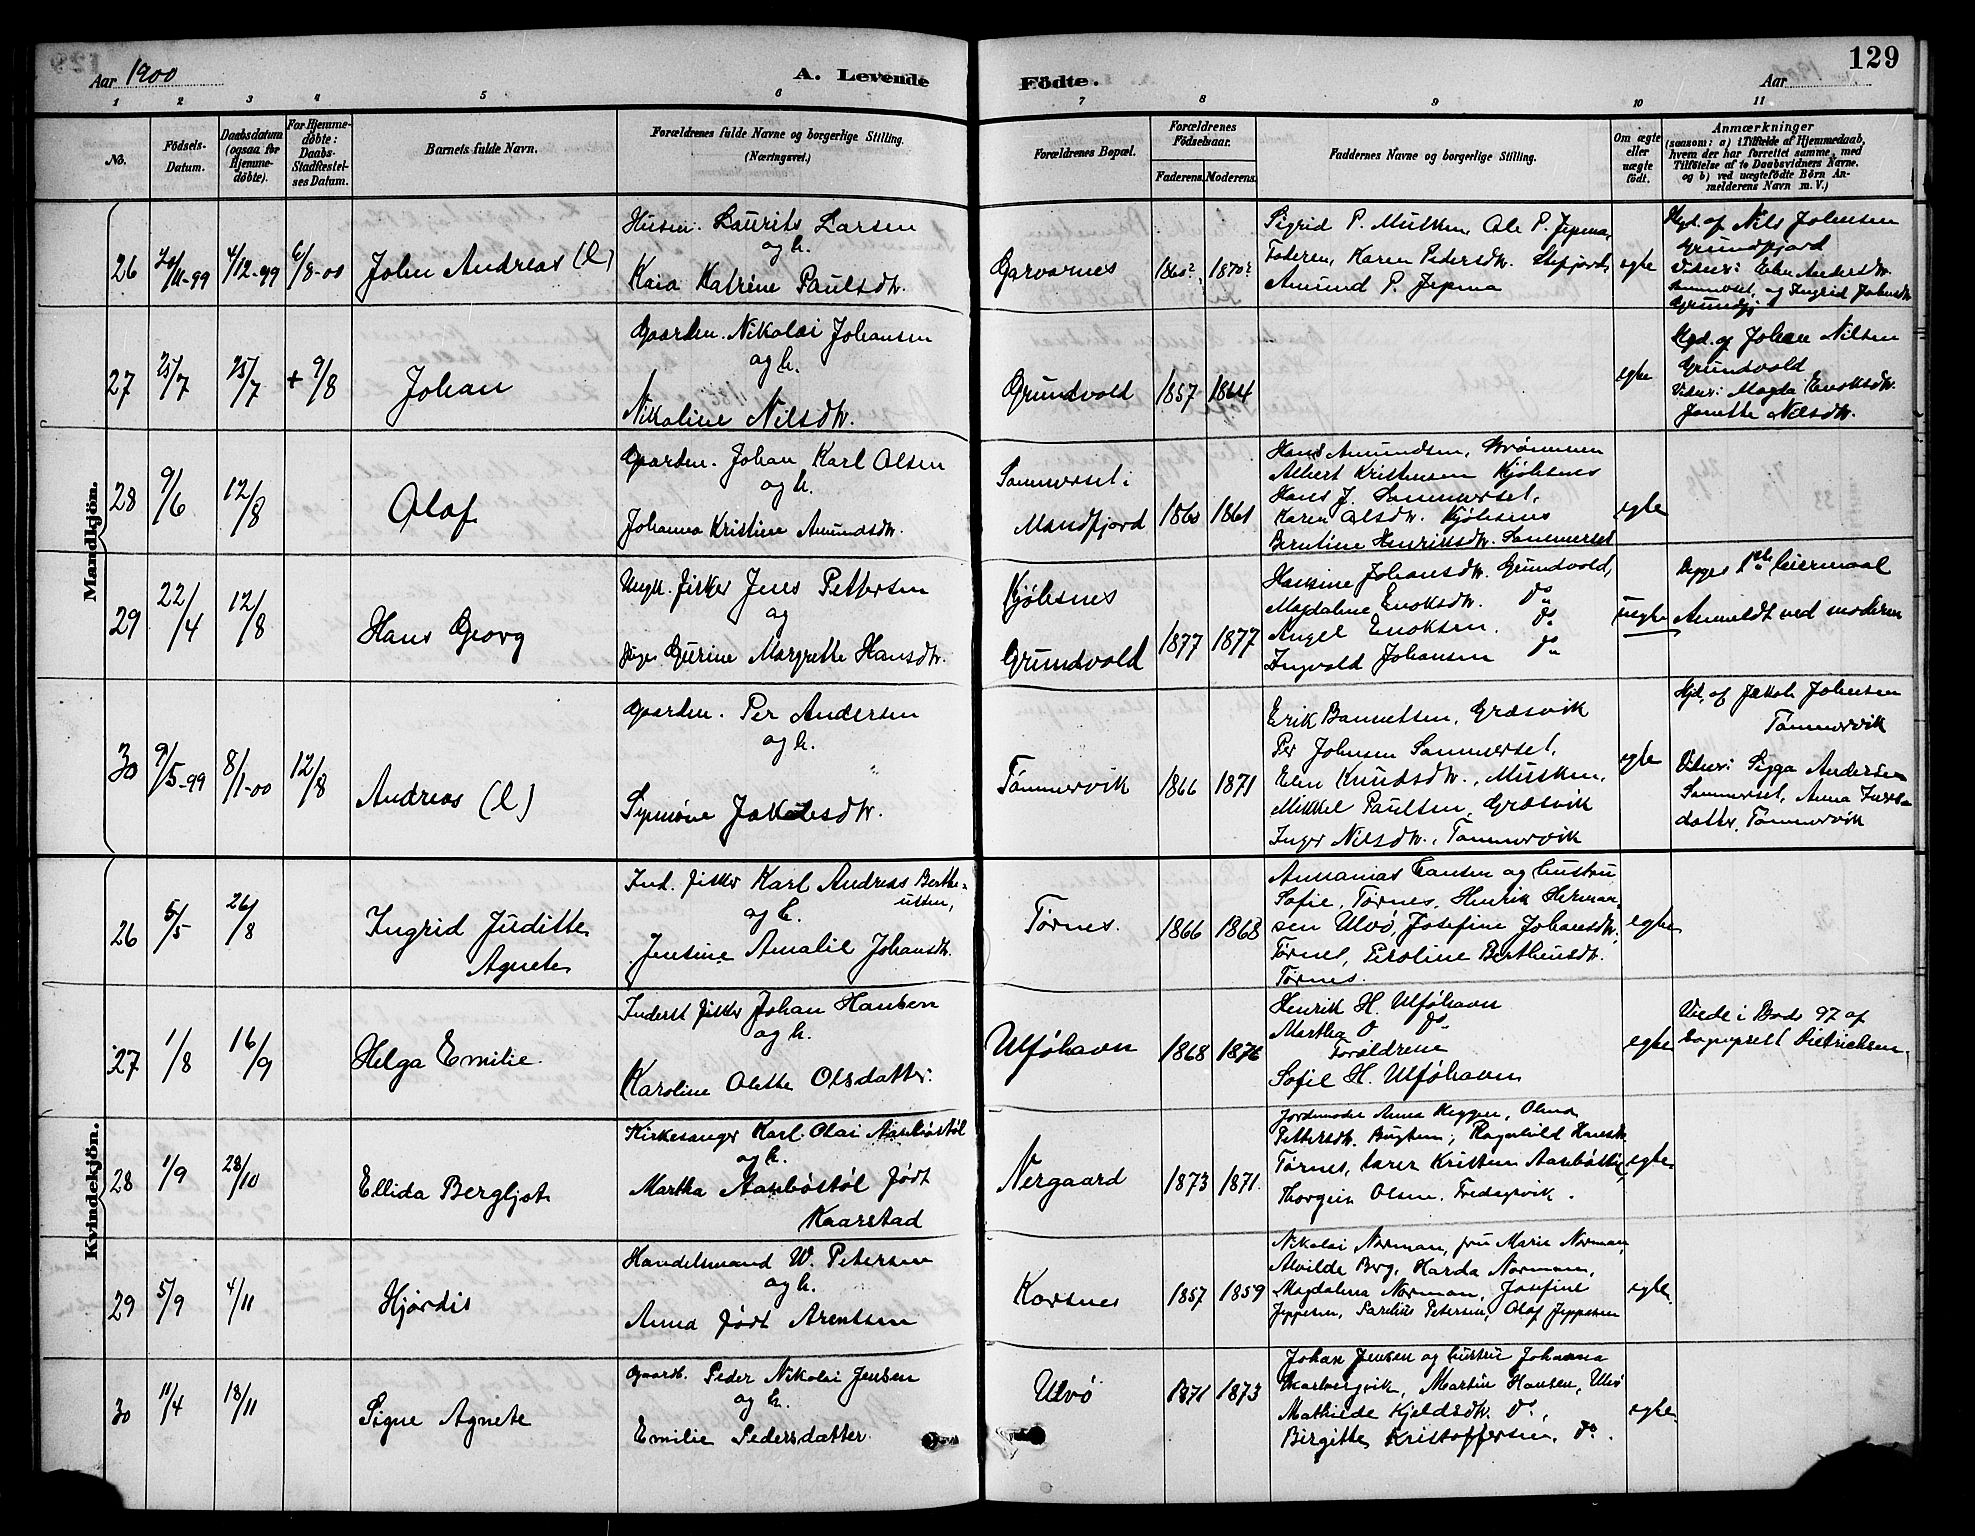 129
Aar 1900
A. Levende Födte.
Aar
1 2 3 4 5 6 7 8 9 10 11
No.
Födsels-
Datum.
Daabsdatum
(ogsaa for
Hjemme-
döbte).
For Hjemme-
döbte:
Daabs-
Stadfæstel-
ses Datum.
Barnets fulde Navn.
Forældrenes fulde Navne og borgerlige Stilling.
(Næringsvei.)
Forældrenes Bopæl.
Forældrenes
Födselsaar.
Faderens. Moderens.
Faddernes Navne og borgerlige Stilling.
Om ægte
eller
uægte
födt.
Anmærkninger
(saasom: a) i Tilfælde af Hjemmedaab,
hvem der har forrettet samme, med
Tilföielse af to Daabsvidners Navne,
og b) ved uægtefödte Börn An-
melderens Navn m. V.)
Mandkjön.
26 20/11-99 4/12-99 6/8-00 John Andreas (l)
Husm. Laurits Larsen
og h.
Kaia Katrine Paulsdtr.
Garvarnes 1860? 1870?
Sigrid P. Musken, Ole P. Jepma,
Faderen, Karen Pedersdtr. Stefjord,
Amund P. Jepma
egte
Hjd. af Nils Johnsen
Grundfjord
Vidner: Elen Andersdtr.
Sommerset, og Ingrid Johnsdtr.
Grundfj.
27 25/7 25/7 + 9/8 Johan
Gaardm. Nikolai Johansen
og h.
Nikoline Nilsdtr.
Grundvold 1857 1864
egte
Hjd. af Johan Nilsen
Grundvold
Vidner: Magda Enoksdtr.
Janette Nilsdtr.
28 9/6 12/8 Olaf
Gaardm. Johan Karl Olsen
og h.
Johanna Kristine Amundsdtr.
Sommerset i
Mandfjord 1860 1861
Hans Amundsen,
Albert Kristensen Kjöbsnes
Hans J. Sommerset,
Karen Olsdtr. Kjöbsnes
Berntine Henriksdtr. Sommerset
egte
29 22/4 12/8 Hans Georg
Ungk. Fisker Jens Pettersen
og
Pige Gurine Margrethe Hansdtr.
Kjöbsnes
Grundvold 1877 1877
Hansine Johansdtr. Grundvold,
Magdalene Enoksdtr. do
Angel Enoksen. do
Ingvald Johansen do
uegte
Begges 1ste leiermaal
Anmeldt ved moderen
30 9/5-99 8/1-00 12/8 Andreas (l)
Gaardm. Per Andersen
og h.
Symöne Jakobsdtr.
Tömmervik 1866 1871
Erik Bannetsen, Græsvik
Per Johnsen Sommerset,
Elen Knudsdtr., Musken,
Mikkel Paulsen, Græsvik
Inger Nilsdtr., Tömmervik
egte
Hjd. af Jakob Johnsen
Tömmervik
Vidner: Sigga Andersen
Sommerset, Anna Iversdatter, Tömmervik
Kvindekjön.
26 5/5 26/8 Ingrid Juditte
Agnete
Ind. Fisker Karl Andreas Bertheussen,
og h.
Jensine Amalie Johansdtr.
Törnes. 1866 1868
Annanias Hansen og hustru
Sofie, Törnes, Henrik Herman-
sen Ulvö, Josefine Johansdtr.
Törnes, Peroline Berthensdtr.
Törnes.
egte
27 1/8 16/9 Helga Emilie
Inderst Fisker Johan Hansen
og h.
Karoline Olette Olsdatter.
Ulföhavn 1868 1876
Henrik H. Ulföhavn
Martha O do
Forældrene
Sofie H. Ulföhavn
egte
Viede i Bodö 97 af
Sogneprest Dietrichsen.
28 1/9 28/10 Ellida Bergljot
Kirkesanger Karl Olai Aarböstöl
og h.
Martha Aarböstöl född
Kaarstad
Nergaard 1873 1871.
Jordmoder Anna Heggen, Olena
Pettersdtr. Bugten, Ragnhild Hansdtr.
Törnes, lærer Kristen Aarböstöl,
Thorgeir Olsen. Fredagsvik.
egte
29 5/9 4/11 Hjördis
Handelsmand W. Petersen
og h.
Anna född Arentsen
Korsnes 1857 1859
Nikolai Norman, fru Marie Norman,
Alvilde Berg, Harda Norman,
Magdalena Norman, Josefine
Jeppesen, Sarelius Petersen, Olaf Jeppesen
egte.
30 11/4 18/11 Signe Agnete
Gaardb. Peder Nikolai Jensen
og h.
Emilie Pedersdatter.
Ulvö 1871 1873
Johan Jensen og hustru Johanna
Skarbergvik, Martin Hansen, Ulvö
Mathilde Kjeldsdtr. do,
Birgitte Kristoffersen, do.
egte